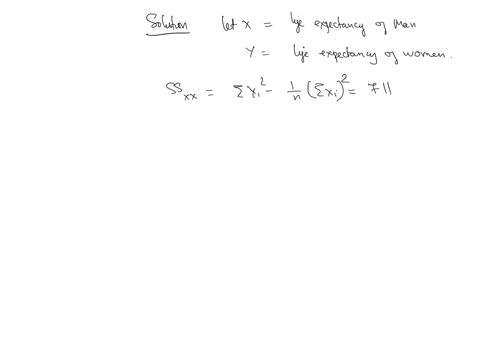 Solution let X = life expectancy of Man
Y = life expectancy of women.
SS_xx = Σx_i² - 1/n (Σx_i)² = 711